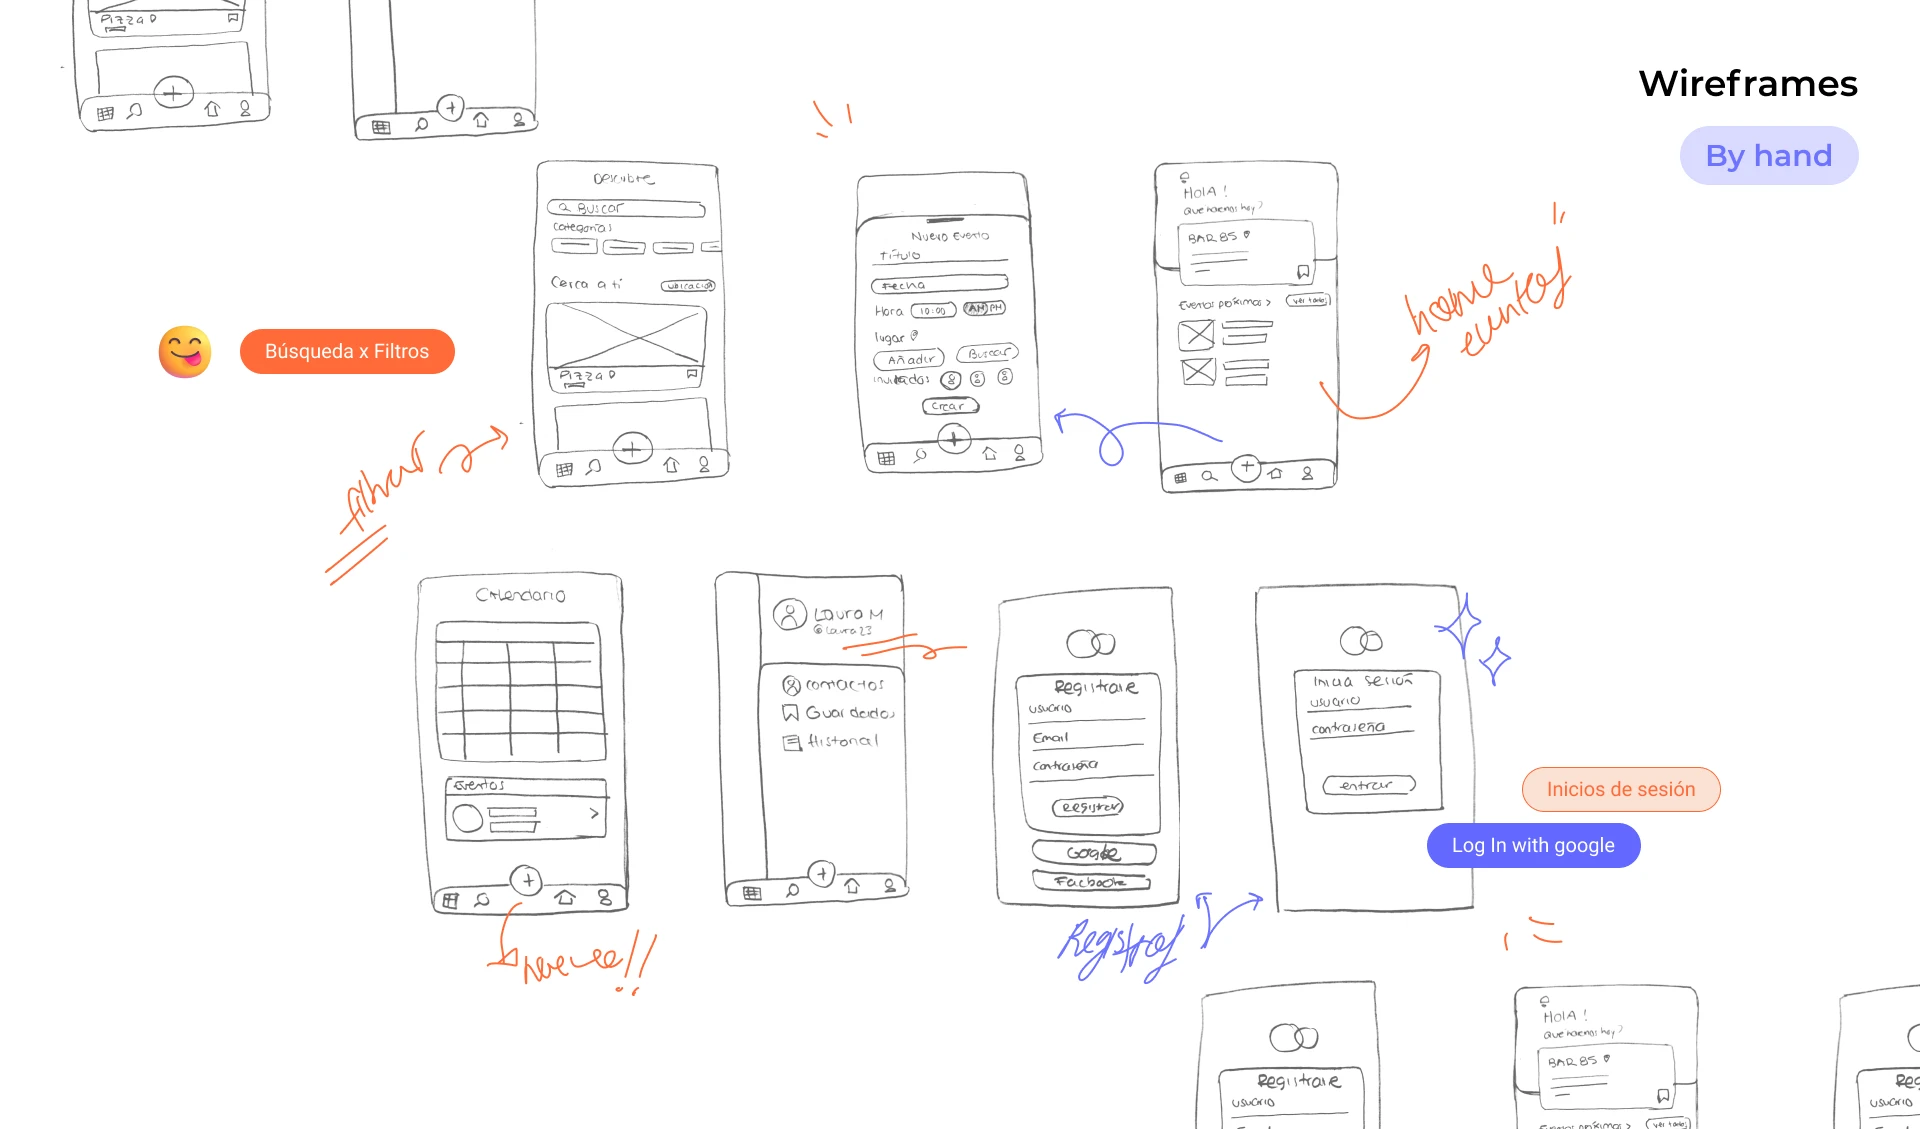 Pizza
Wireframes
By hand
Descubre
Buscar
Categorias
Cerca a ti
ubicación
Pizza
Búsqueda x Filtros
filtrar
Nuevo Evento
Título
Fecha
Hora 10:00 AM PM
lugar
Añadir Buscar
invitados
Crear
HOLA !
Que haremos hoy?
BAR 85
Eventos próximos > ver todos
home
eventos
Calendario
Eventos
Laura M
@Laura23
contactos
Guardados
Historial
Registrare
usuario
Email
contraseña
Registrar
Google
Facbook
Registros
Inicia sesión
usuario
contraseña
entrar
Inicios de sesión
Log In with google
Registrare
usuario
HOLA !
Que haremos hoy?
BAR 85
Eventos próximos > ver todos
Re
usuario